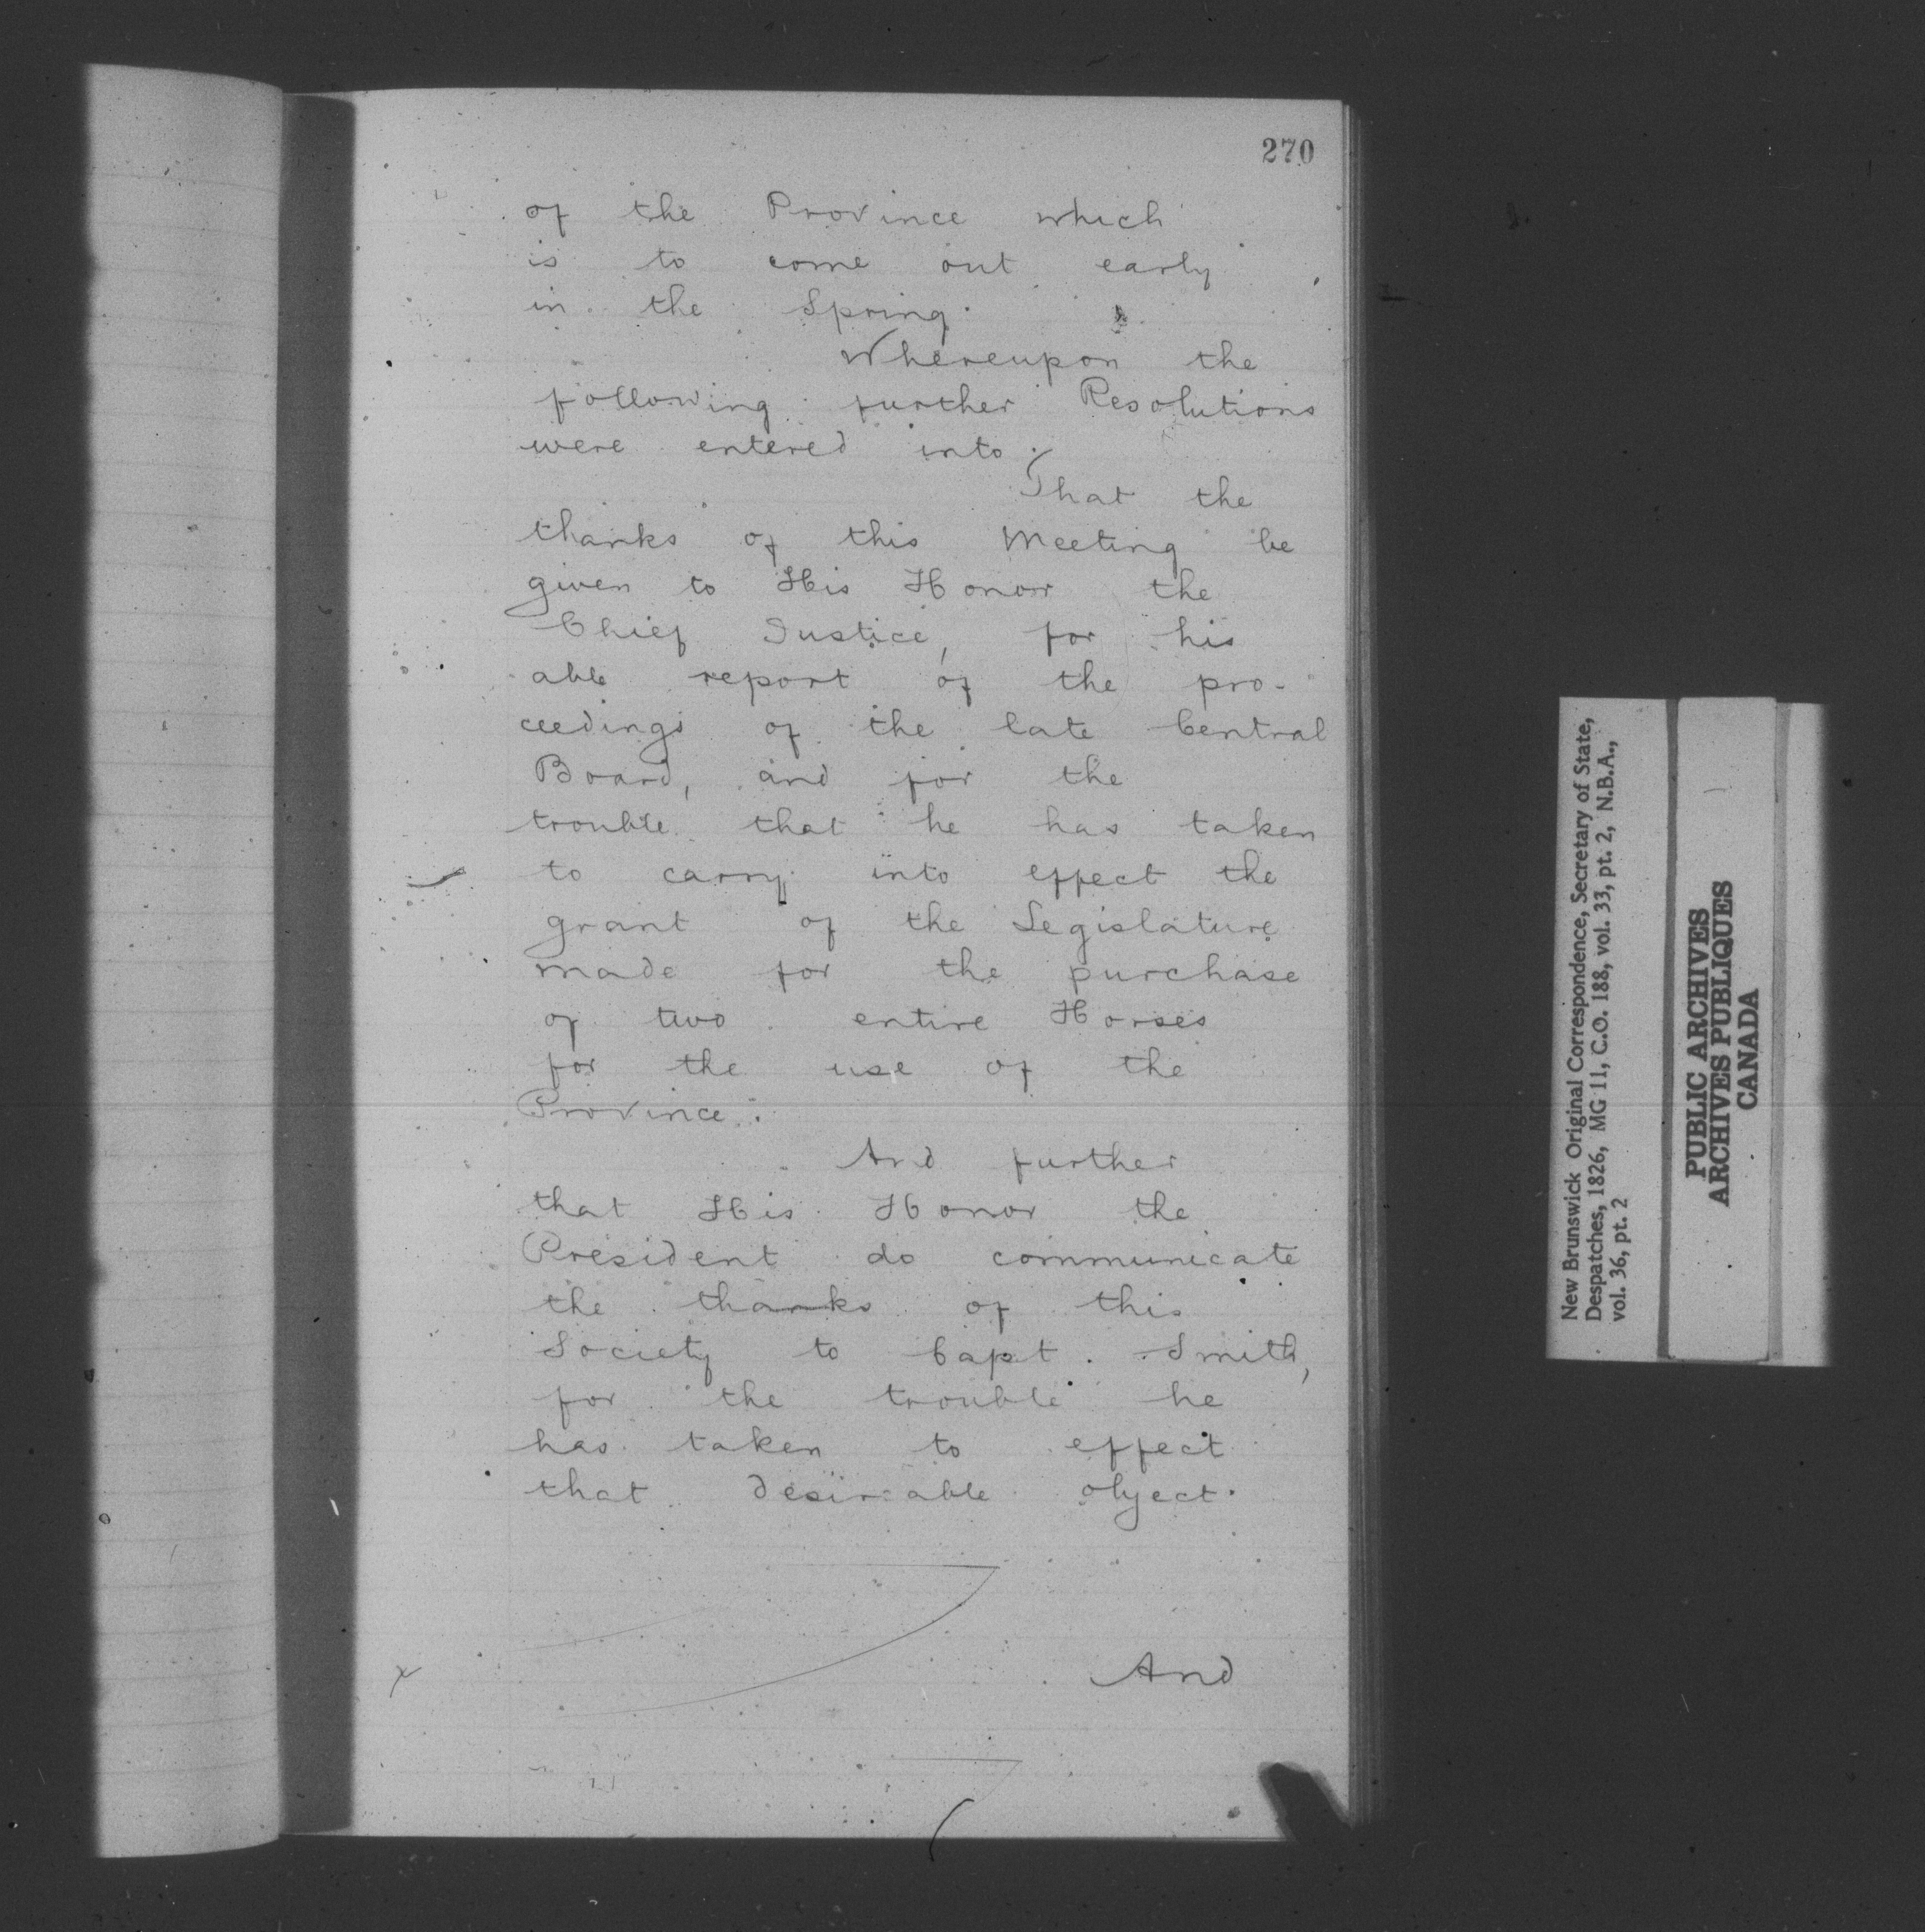 270
of the Province which
is to come out early
in the Spring.
Whereupon the
following further Resolutions
were entered into.
That the
thanks of this Meeting be
given to His Honor the
Chief Justice, for his
able report of the pro-
ceedings of the late Central
Board, and for the
trouble that he has taken
to carry into effect the
grant of the Legislature
made for the purchase
of two entire Horses
for the use of the
Province.
And further
that His Honor the
President do communicate
the thanks of this
Society to Capt. Smith,
for the trouble he
has taken to effect
that desirable object.
And
New Brunswick Original Correspondence, Secretary of State,
Despatches, 1826, MG 11, C.O. 188, vol. 33, pt. 2, N.B.A.,
vol. 36, pt. 2
PUBLIC ARCHIVES
ARCHIVES PUBLIQUES
CANADA